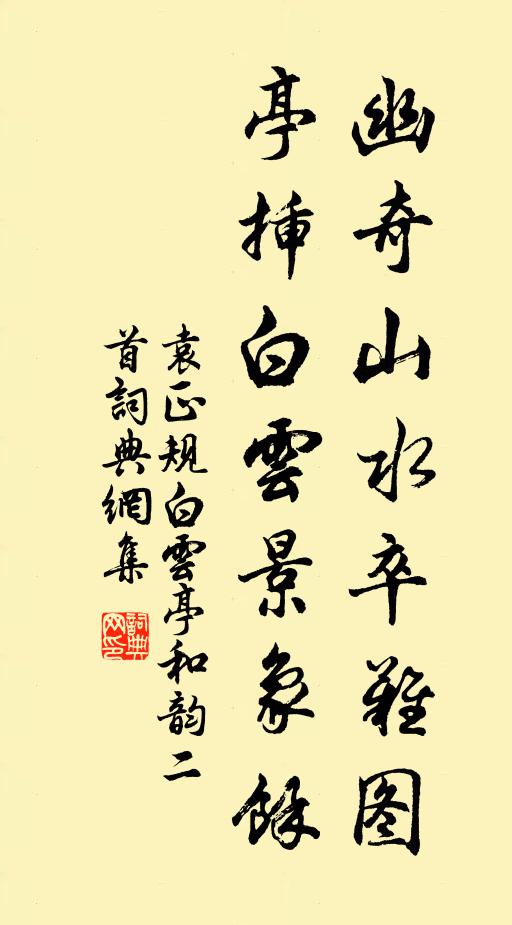 幽奇山水卒難图
亭插白雲景象餘
袁正規白雲亭和韵二
首詞典網集
詞典
网印